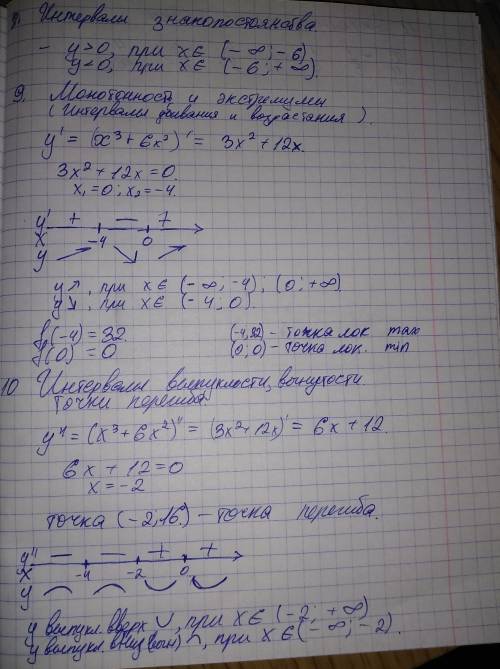 8. Интервалы знакопостоянства.
- y>0, при x∈ (-∞;-6)
y<0, при x∈ (-6;+∞).
9. Монотонность и экстремумы
(Интервалы убывания и возрастания).
y' = (x³+6x²)' = 3x²+12x.
3x²+12x=0.
x₁=0; x₂=-4.
y' + — +
x -4 0
y ↗ ↘ ↗
y↗, при x∈ (-∞;-4); (0;+∞)
y↘, при x∈ (-4;0).
f(-4) = 32 (-4;32) - точка лок max
f(0) = 0 (0;0) - точка лок. min
10 Интервалы выпуклости, вогнутости.
Точки перегиба
y'' = (x³+6x²)'' = (3x²+12x)' = 6x+12.
6x+12=0
x=-2
точка (-2;16) - точка перегиба.
y'' — — + +
x -4 -2 0
y ⌒ ⌒ ⌣ ⌣
y выпукл. вверх ∪, при x∈ (-2; +∞)
y выпукл. вниз ∩, при x∈ (-∞; -2).